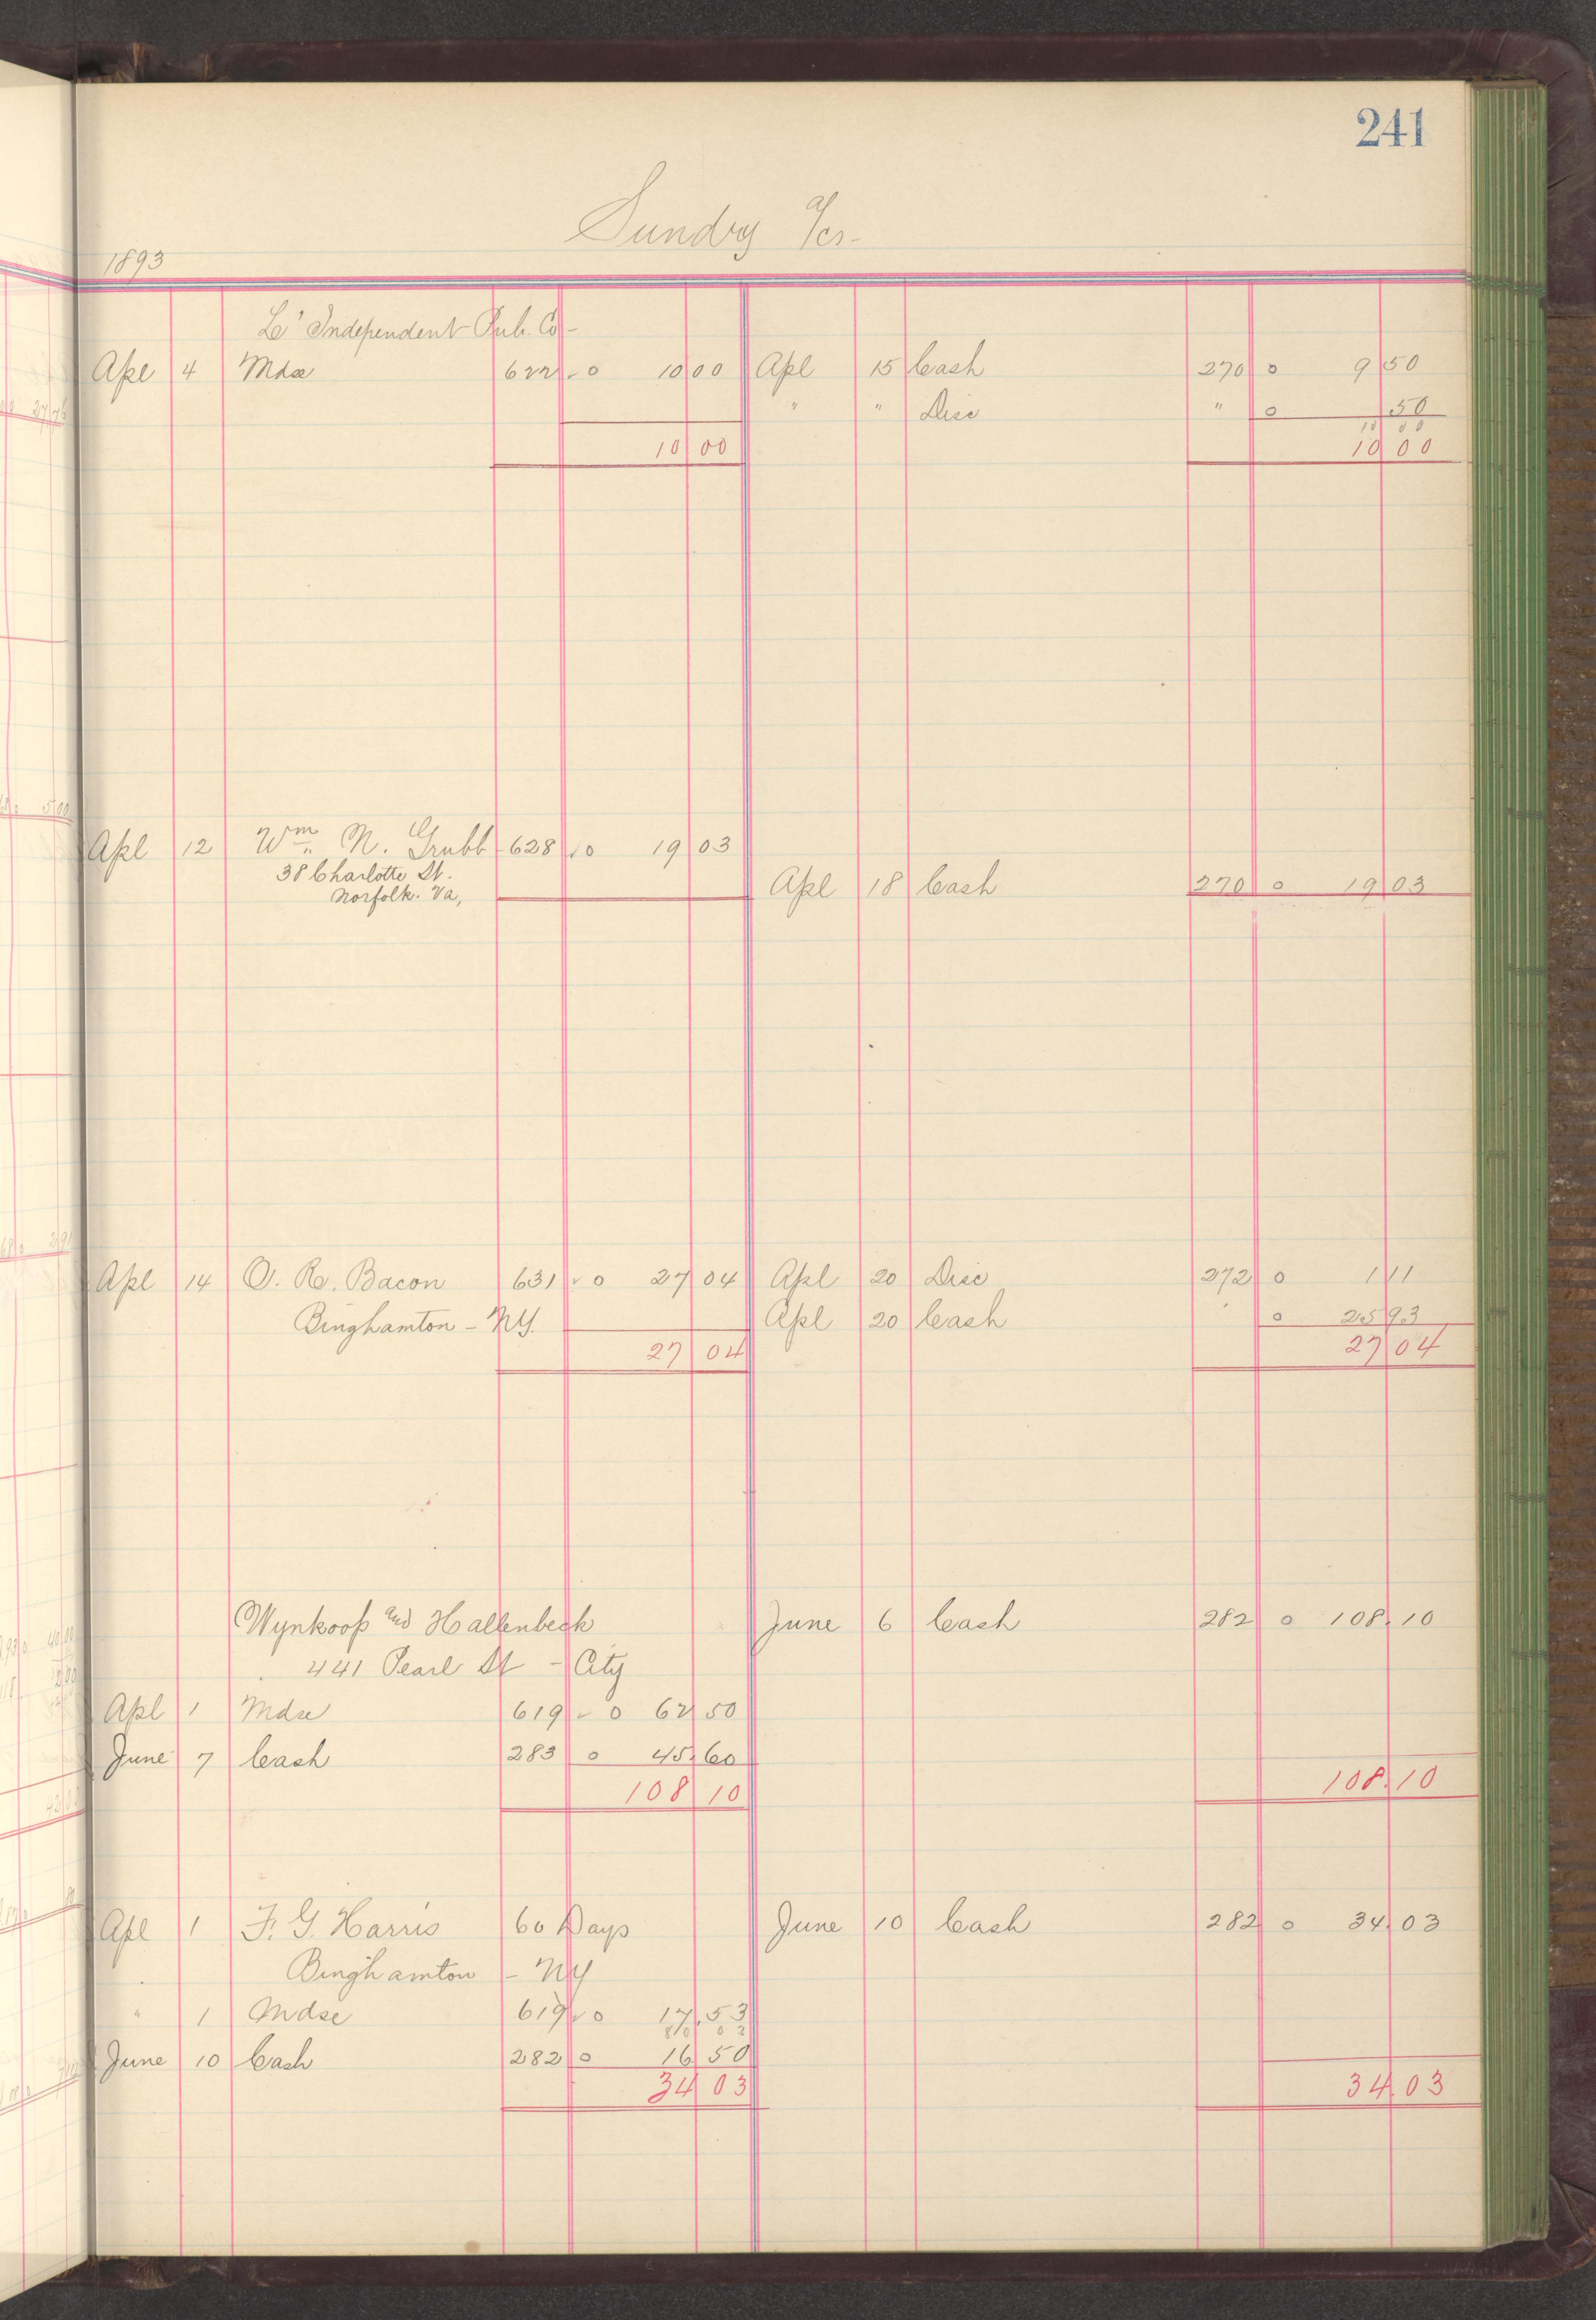 241
Sundry a/cs-
1893
L' Independent Pub. Co-
Apl 4 Mdse 622 o 10 00 Apl 15 Cash 270 o 9 50
" " Disc " o 50
10 00
10 00 10 00
Apl 12 Wm. N. Grubb 628 o 19 03
38 Charlotte St.
Norfolk. Va, Apl 18 Cash 270 o 19 03
Apl 14 O. R. Bacon 631 o 27 04 Apl 20 Disc 272 o 1 11
Binghamton - NY. Apl 20 Cash o 25 93
27 04 27 04
Wynkoop and Hallenbeck June 6 Cash 282 o 108 10
441 Pearl St - City
Apl 1 Mdse 619 o 62 50
June 7 Cash 283 o 45 60
108 10 108 10
Apl 1 F. G. Harris 60 Days June 10 Cash 282 o 34 03
Binghamton - NY
" 1 Mdse 619 o 17 53
June 10 Cash 282 o 16 50
34 03 34 03